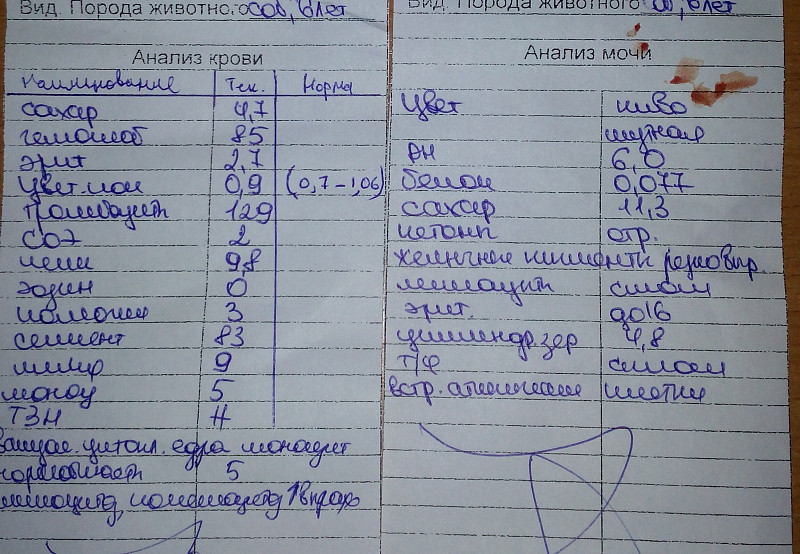 Вид. Порода животного соб, 6 лет
Анализ крови
Наименование Тек. Норма
сахар 4,7
гемоглоб 85
эрит 2,7
цвет. пок 0,9 (0,7-1,06)
тромбоцит 129
СОЭ 2
лейк 9,8
эозин 0
палочки 3
сегмент 83
лимф 9
моноц 5
ТЗН #
вакуол. цитопл. ядра моноцит
нормобласт 5
Вид. Порода животного соб, 6 лет
Анализ мочи
Цвет пиво
мутная
PH 6,0
белок 0,077
сахар 11,3
кетоны отр.
желчные пигменты резко выр.
лейкоцит сплош
эрит. до 16
цилиндр. зер 4,8
т/ф сплош
встр. атипические клетки